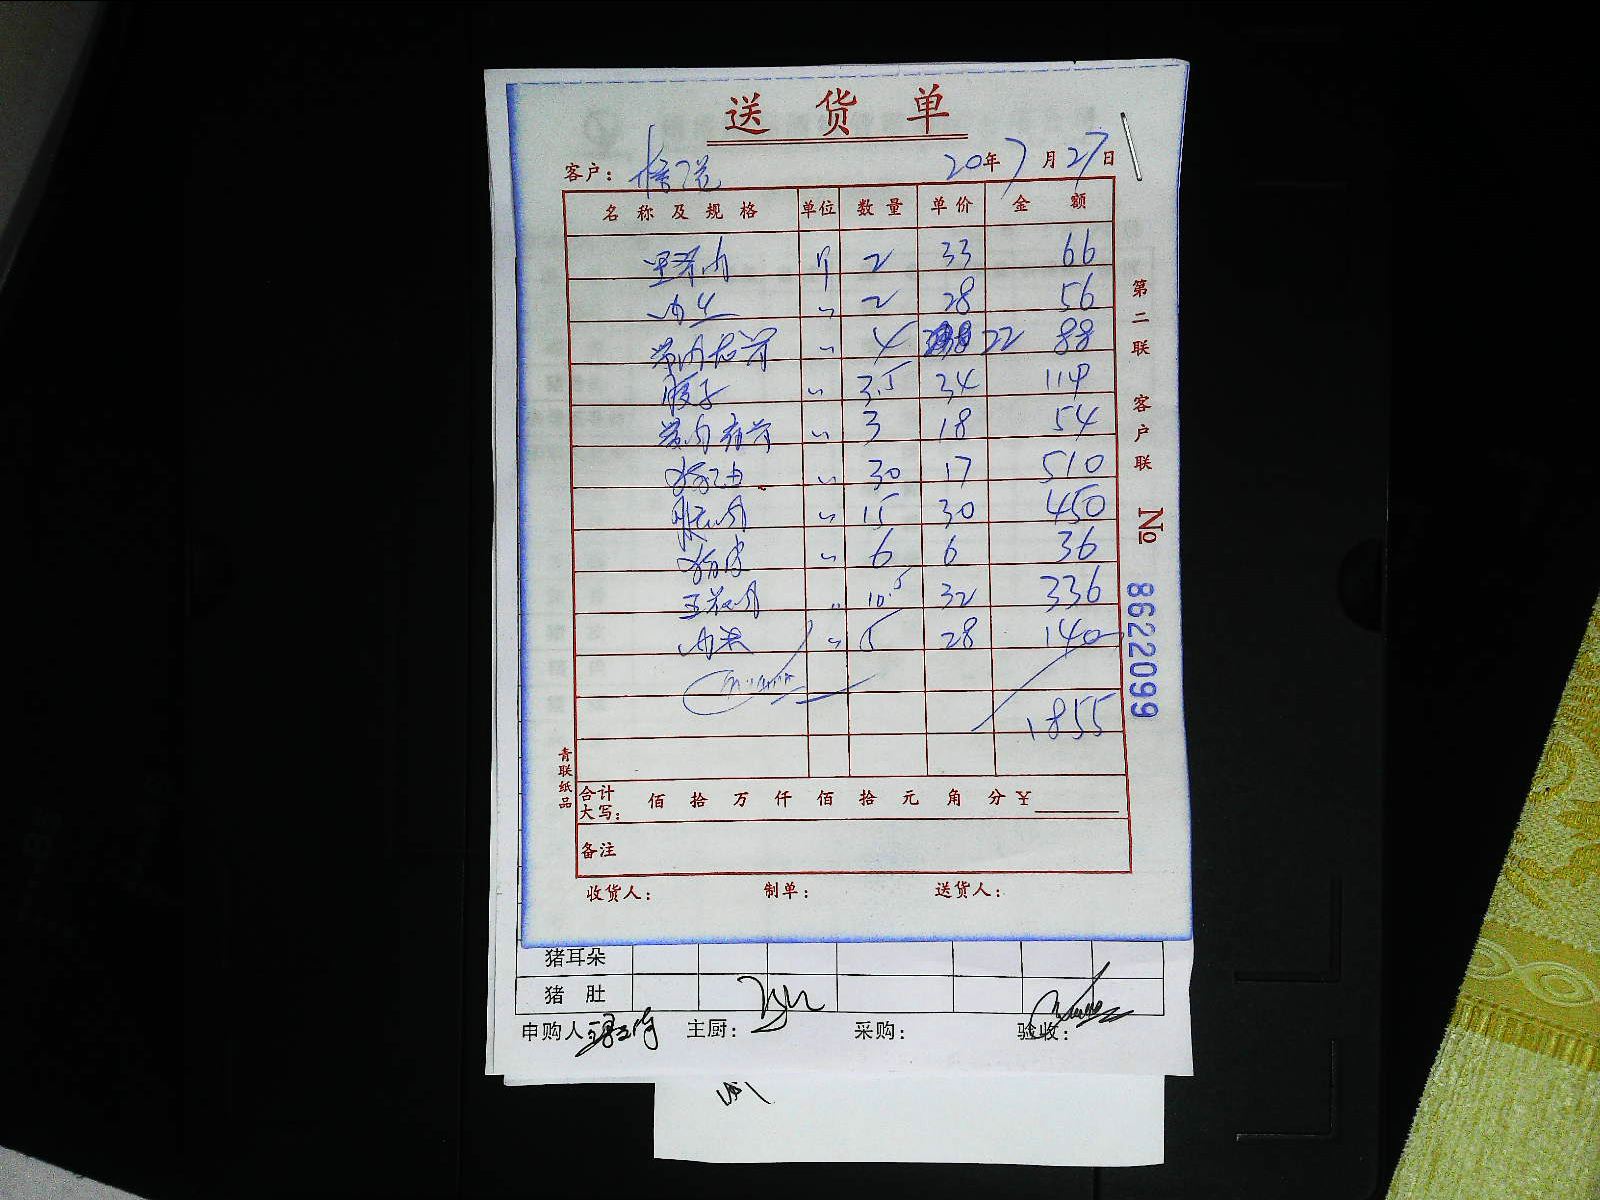 送货单
客户： 20年7月27日
名称及规格 单位 数量 单价 金额
里脊肉 斤 2 33 66
肉丝 〃 2 28 56
带内 〃 4 22 88
肚子 〃 3.5 34 119
带肉 〃 3 18 54
猪油 〃 30 17 510
腿肉 〃 15 30 450
猪皮 〃 6 6 36
五花肉 〃 10.5 32 336
肉末 〃 5 28 140
1855
合计大写： 佰 拾 万 仟 佰 拾 元 角 分 ￥
备注
收货人： 制单： 送货人：
第二联 客户联 № 8622099
青联纸品
猪耳朵
猪肚
申购人： 主厨： 采购： 验收：